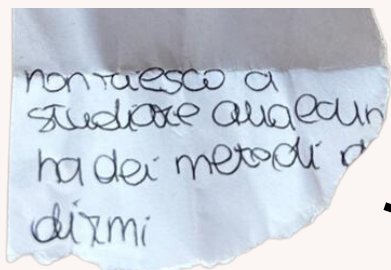 non riesco a
studiare qualcun
ha dei metodi d
dirmi